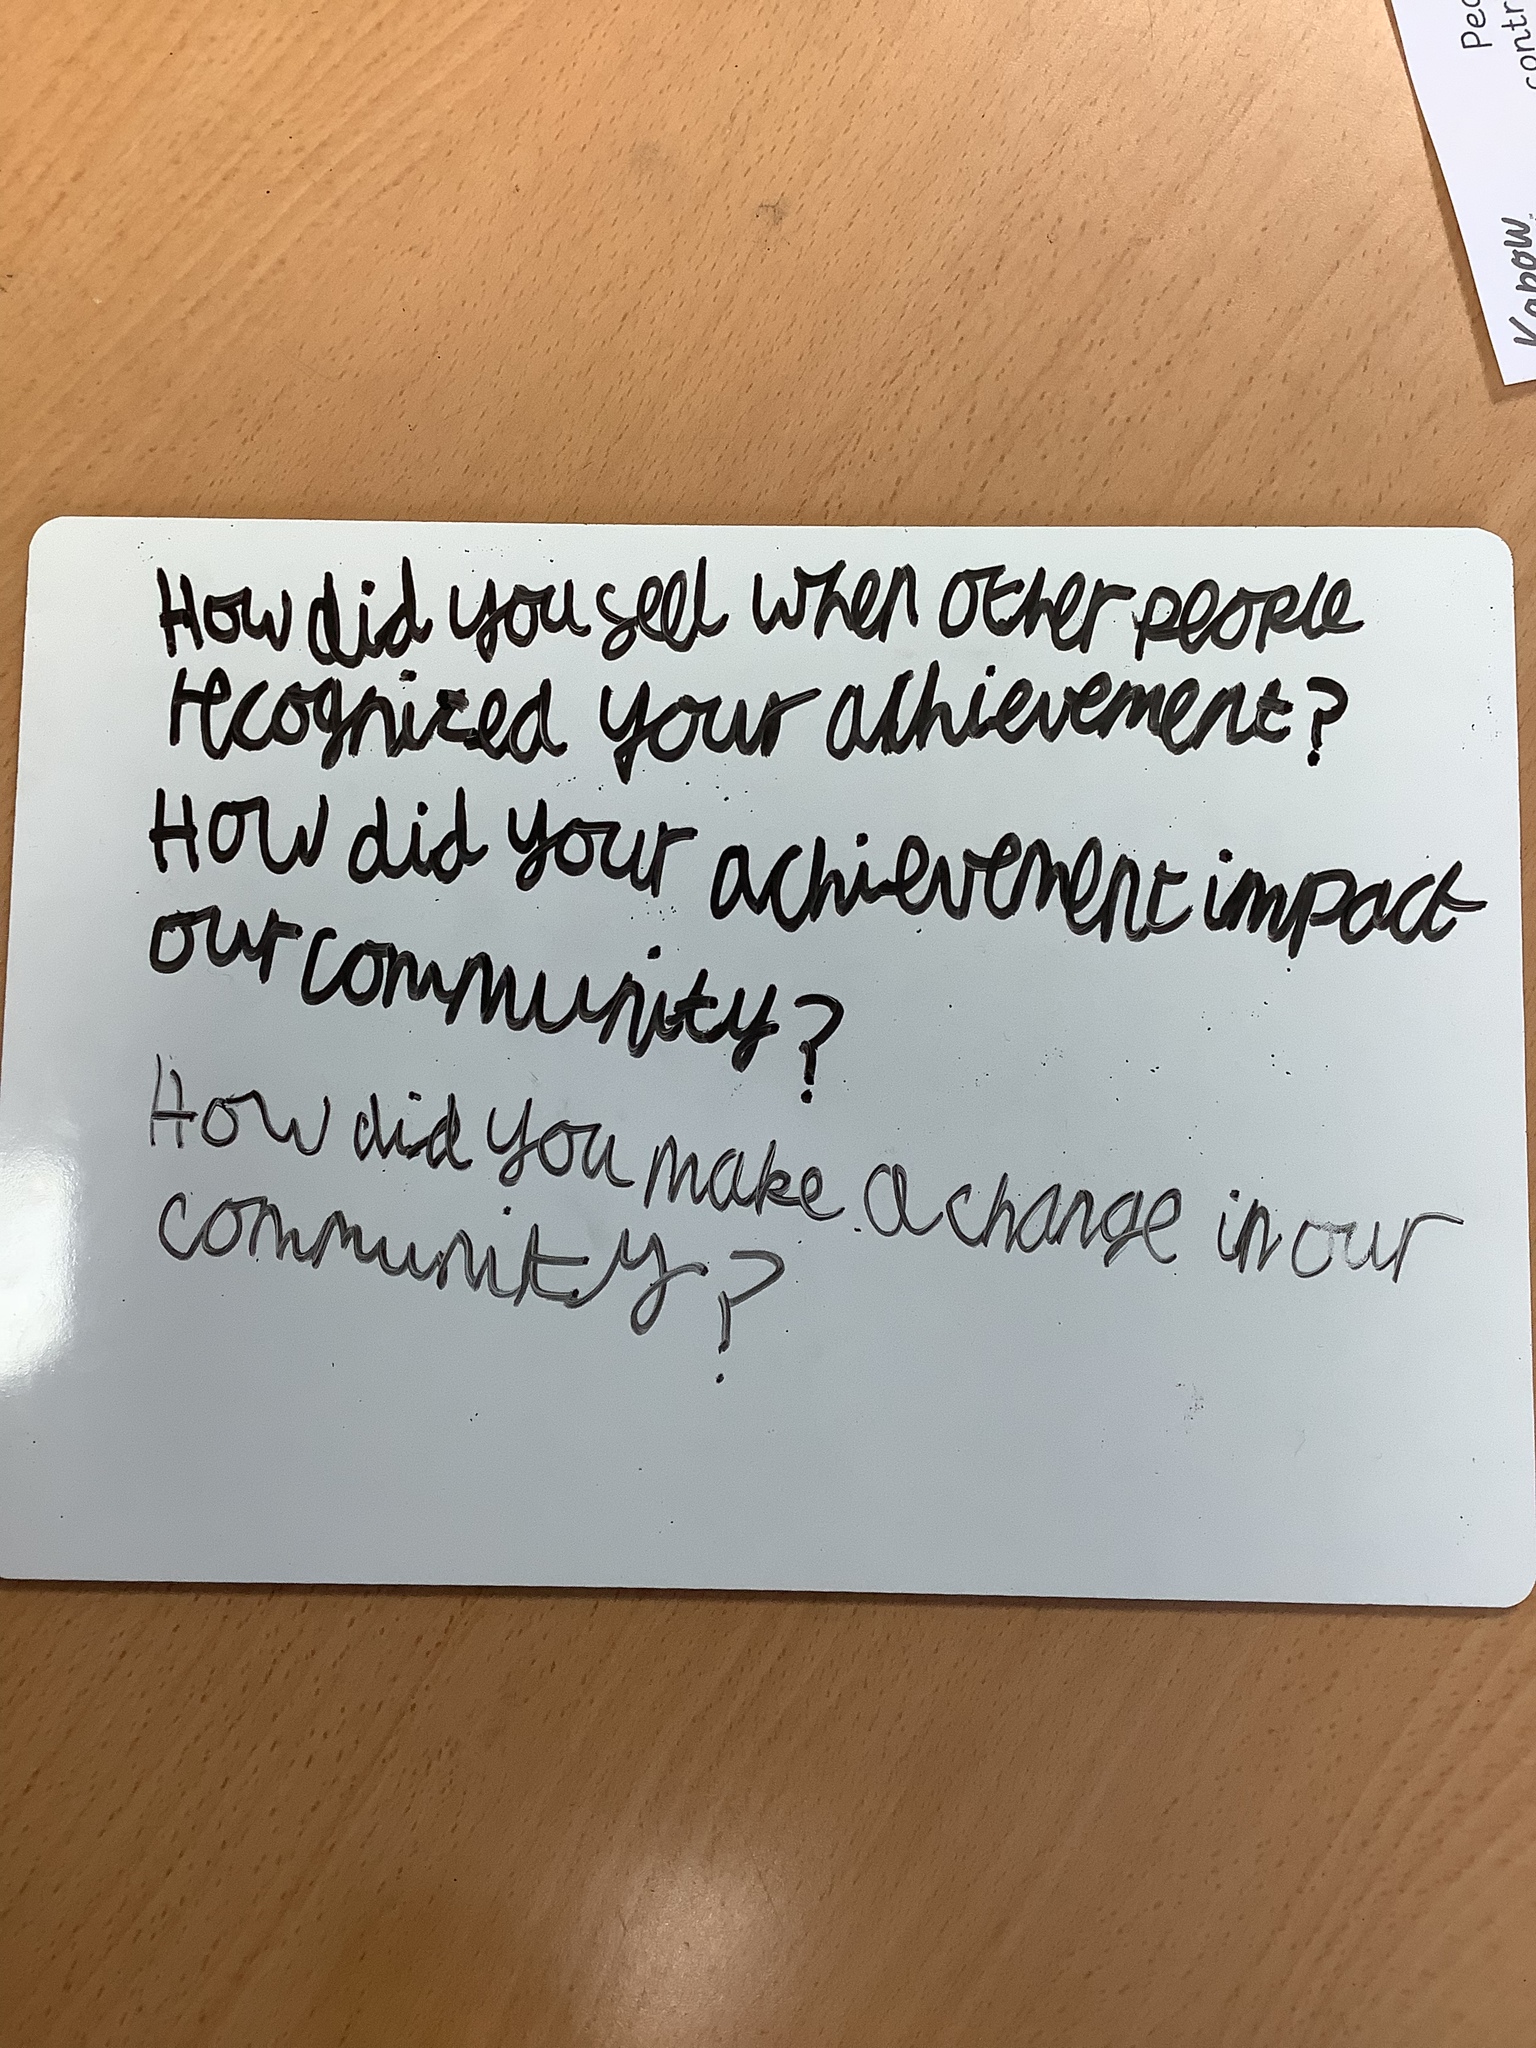 How did you seel when other people
recognized your achievement?
How did your achievement impact
our community?
How did you make a change in our
community?
Kapow